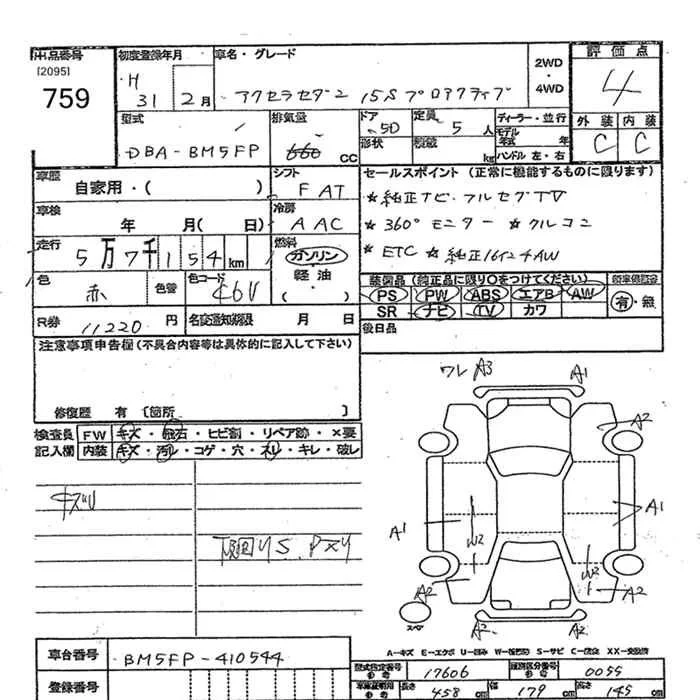 出品番号
[2095]
759
初度登録年月
H
31 2月
車名・グレード
アクセラセダン 15S プロアクティブ
2WD
・
4WD
評価点
4
外装 内装
C C
型式
DBA-BM5FP
排気量
660 CC
ドア
5D
形状
定員
5人
積載
kg
ディーラー・並行
モデル年式 年
ハンドル 左・右
車歴
自家用・( )
シフト
F AT
車検
年 月( 日)
冷房
A AC
走行
5万7千154km
燃料
ガソリン
・
軽油
・( )
色
赤
色替
色コード
46V
R券
11220 円
名変通知期限 月 日
セールスポイント (正常に機能するものに限ります)
★純正ナビ・フルセグTV
★360°モニター ★クルコン
★ETC ★純正16インチAW
装備品 (純正品に限り○をつけてください)
PS PW ABS エアB AW
SR ナビ TV カワ
有・無
後日品
注意事項申告欄(不具合内容等は具体的に記入して下さい)
修復歴 有 〔箇所 〕
検査員
記入欄
FW キズ・飛石・ヒビ割・リペア跡・×要
内装 キズ・汚れ・コゲ・穴・スレ・キレ・破レ
キズU
下廻りS.Pスリ
ワレ A3 A1
A2
A1
A1
W2
W2
A2
A2
スペア
A2 A2
A-キズ E-エクボ U-凹み W-補修跡 S-サビ C-腐食 XX-交換済
車台番号
BM5FP-410544
登録番号
型式指定番号
参考
17606
類別区分番号
参考
0055
車庫証明用
参考
長さ
458cm
幅
179cm
高さ
145cm